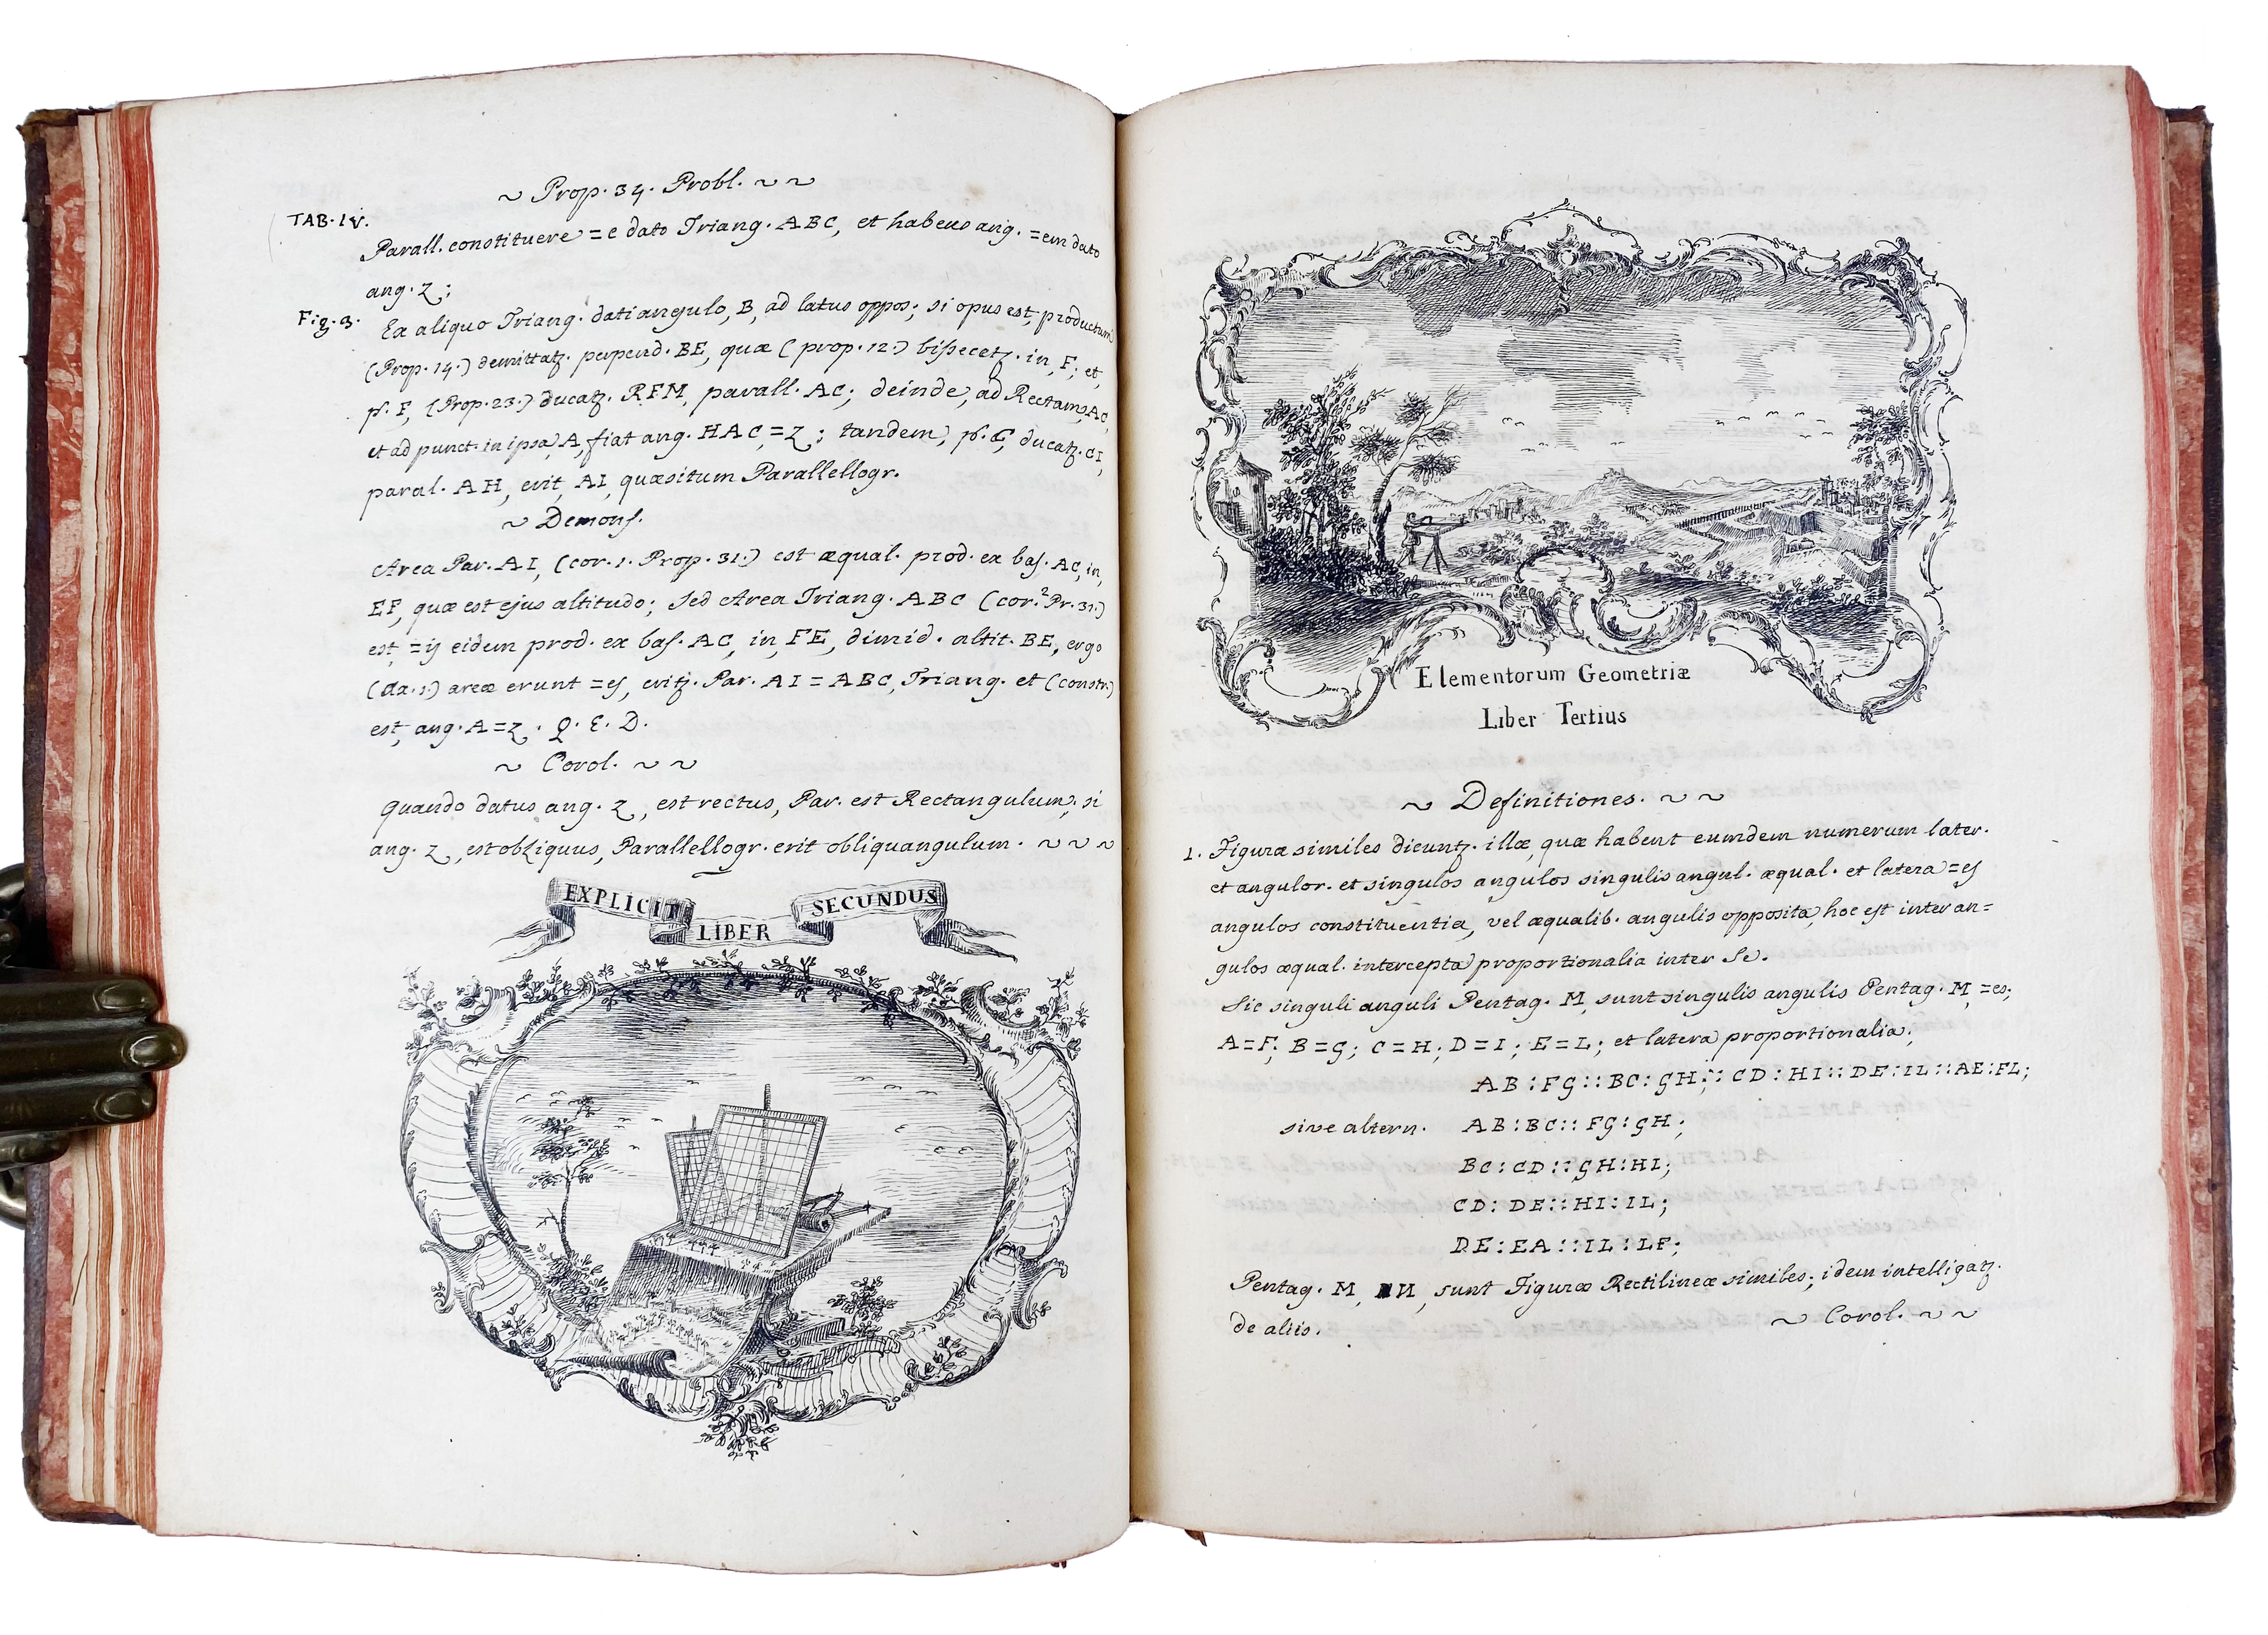 ~ Prop. 34. Probl. ~ ~
TAB. IV.
Parall. constituere =e dato Triang. ABC, et habens ang. =em dato
ang. Z;
Fig. 3.
Ex aliquo Triang. dati angulo, B, ad latus oppos; si opus est, productum
(Prop. 14.) demittatz. perpend. BE, quæ (prop. 12.) bissecetz. in, F; et,
F, (Prop. 23.) ducatz. RFM, parall. AC; deinde, ad Rectam, AC,
et ad punct. in ipsa, A, fiat ang. HAC, =Z; tandem, C, ducatz. CI,
paral. AH, erit, AI, quæsitum Parallellogr.
~ Demons.
Area Par. AI, (cor. 1. Prop. 31.) est æqual. prod. ex bas. AC, in,
EF, quæ est ejus altitudo; sed Area Triang. ABC (cor. 2 Pr. 31.)
est, =ij eidem prod. ex bas. AC, in, FE, dimid. altit. BE, ergo
(da. 1.) areæ erunt =es, eritz. Par. AI = ABC, Triang. et (constr.)
est, ang. A=Z. Q. E. D.
~ Corol. ~ ~
Quando datus ang. Z, est rectus, Par. est Rectangulum; si
ang. Z, est obliquus, Parallellogr. erit obliquangulum. ~ ~ ~
EXPLICIT LIBER SECUNDUS
Elementorum Geometriæ
Liber Tertius
~ Definitiones. ~ ~
1. Figuræ similes dicuntz. illæ, quæ habent eumdem numerum later.
et angulor. et singulos angulos singulis angul. æqual. et latera =es
angulos constituentia, vel æqualib. angulis opposita, hoc est inter an=
gulos æqual. intercepta proportionalia inter se.
Sic singuli anguli Pentag. M, sunt singulis angulis Pentag. M, =es;
A=F; B=G; C=H; D=I; E=L; et latera proportionalia;
AB:FG::BC:GH;::CD:HI::DE:IL::AE:FL;
sive altern. AB:BC::FG:GH;
BC:CD::GH:HI;
CD:DE::HI:IL;
DE:EA::IL:LF;
Pentag. M, N, sunt Figuræ Rectilineæ similes; idem intelligatz.
de aliis.
~ Corol. ~ ~